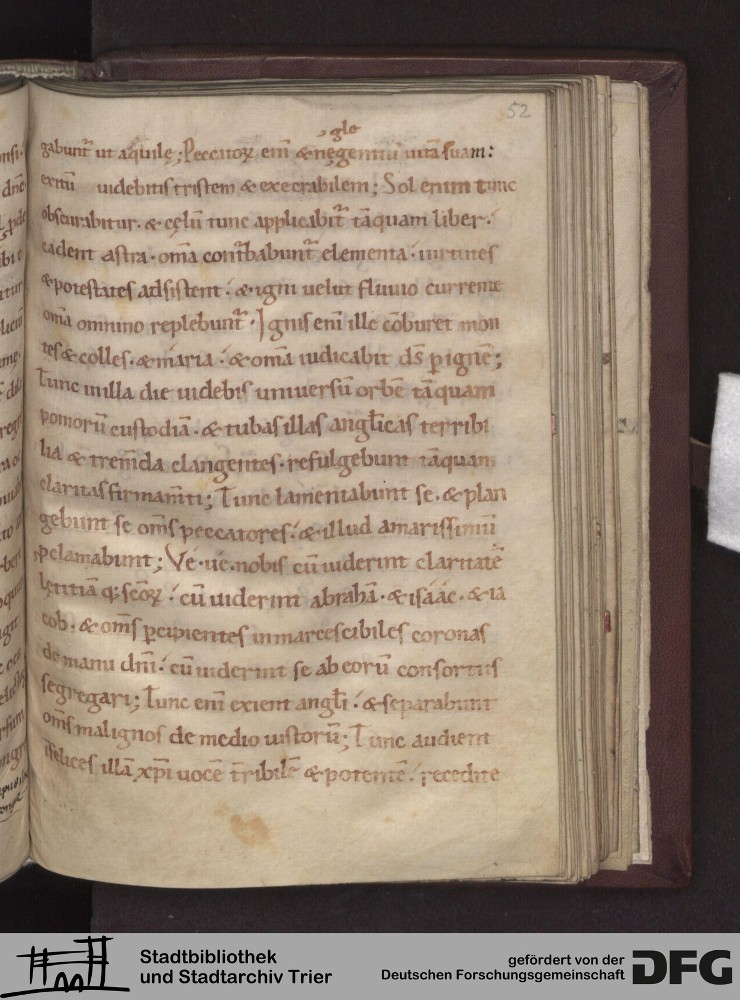 52
gle
gabunt̄ ut aquilę; Peccatoꝝ eni̅ & negentiū uitā suam:
exitū uidebitis tristem & execrabilem; Sol enim tunc
obscurabitur. & cęlū tunc applicabit̄ tāquam liber.
cadent astra. om̅a cont̄babunt̄ elementa. uirtutes
& potestates adsistent. & igni uelut fluuio currente
om̅a omnino replebunt̄. Ignis eni̅ ille cōburet mon
tes & colles. & maria. & om̅a iudicabit d̅s p̱ ignē;
Tunc in illa die uidebis uniuersū orbē tāquam
pomorū custodiā. & tubas illas angl̅icas terribi
lia & trem̅da clangentes. refulgebunt tāquam
claritas firmam̅ti; Tunc lamentabunt se. & plan
gebunt se om̅s peccatores. & illud amarissimū
ꝓclamabunt; Vé. ue. nobis cū uiderint claritatē
lętitiā q; sc̅oꝝ. cū uiderint abrahā. & isáác. & ia
cob. & om̅s p̱cipientes inmarcescibiles coronas
de manu dn̅i. cū uiderint se ab eorū consortiis
segregari; Tunc eni̅ exient angl̅i. & separabunt
om̅s malignos de medio iustorū; Tunc audient
īfelices illā xp̅i uocē t̅ribilē & potentē. recedite
Stadtbibliothek
und Stadtarchiv Trier
gefördert von der
Deutschen Forschungsgemeinschaft
DFG